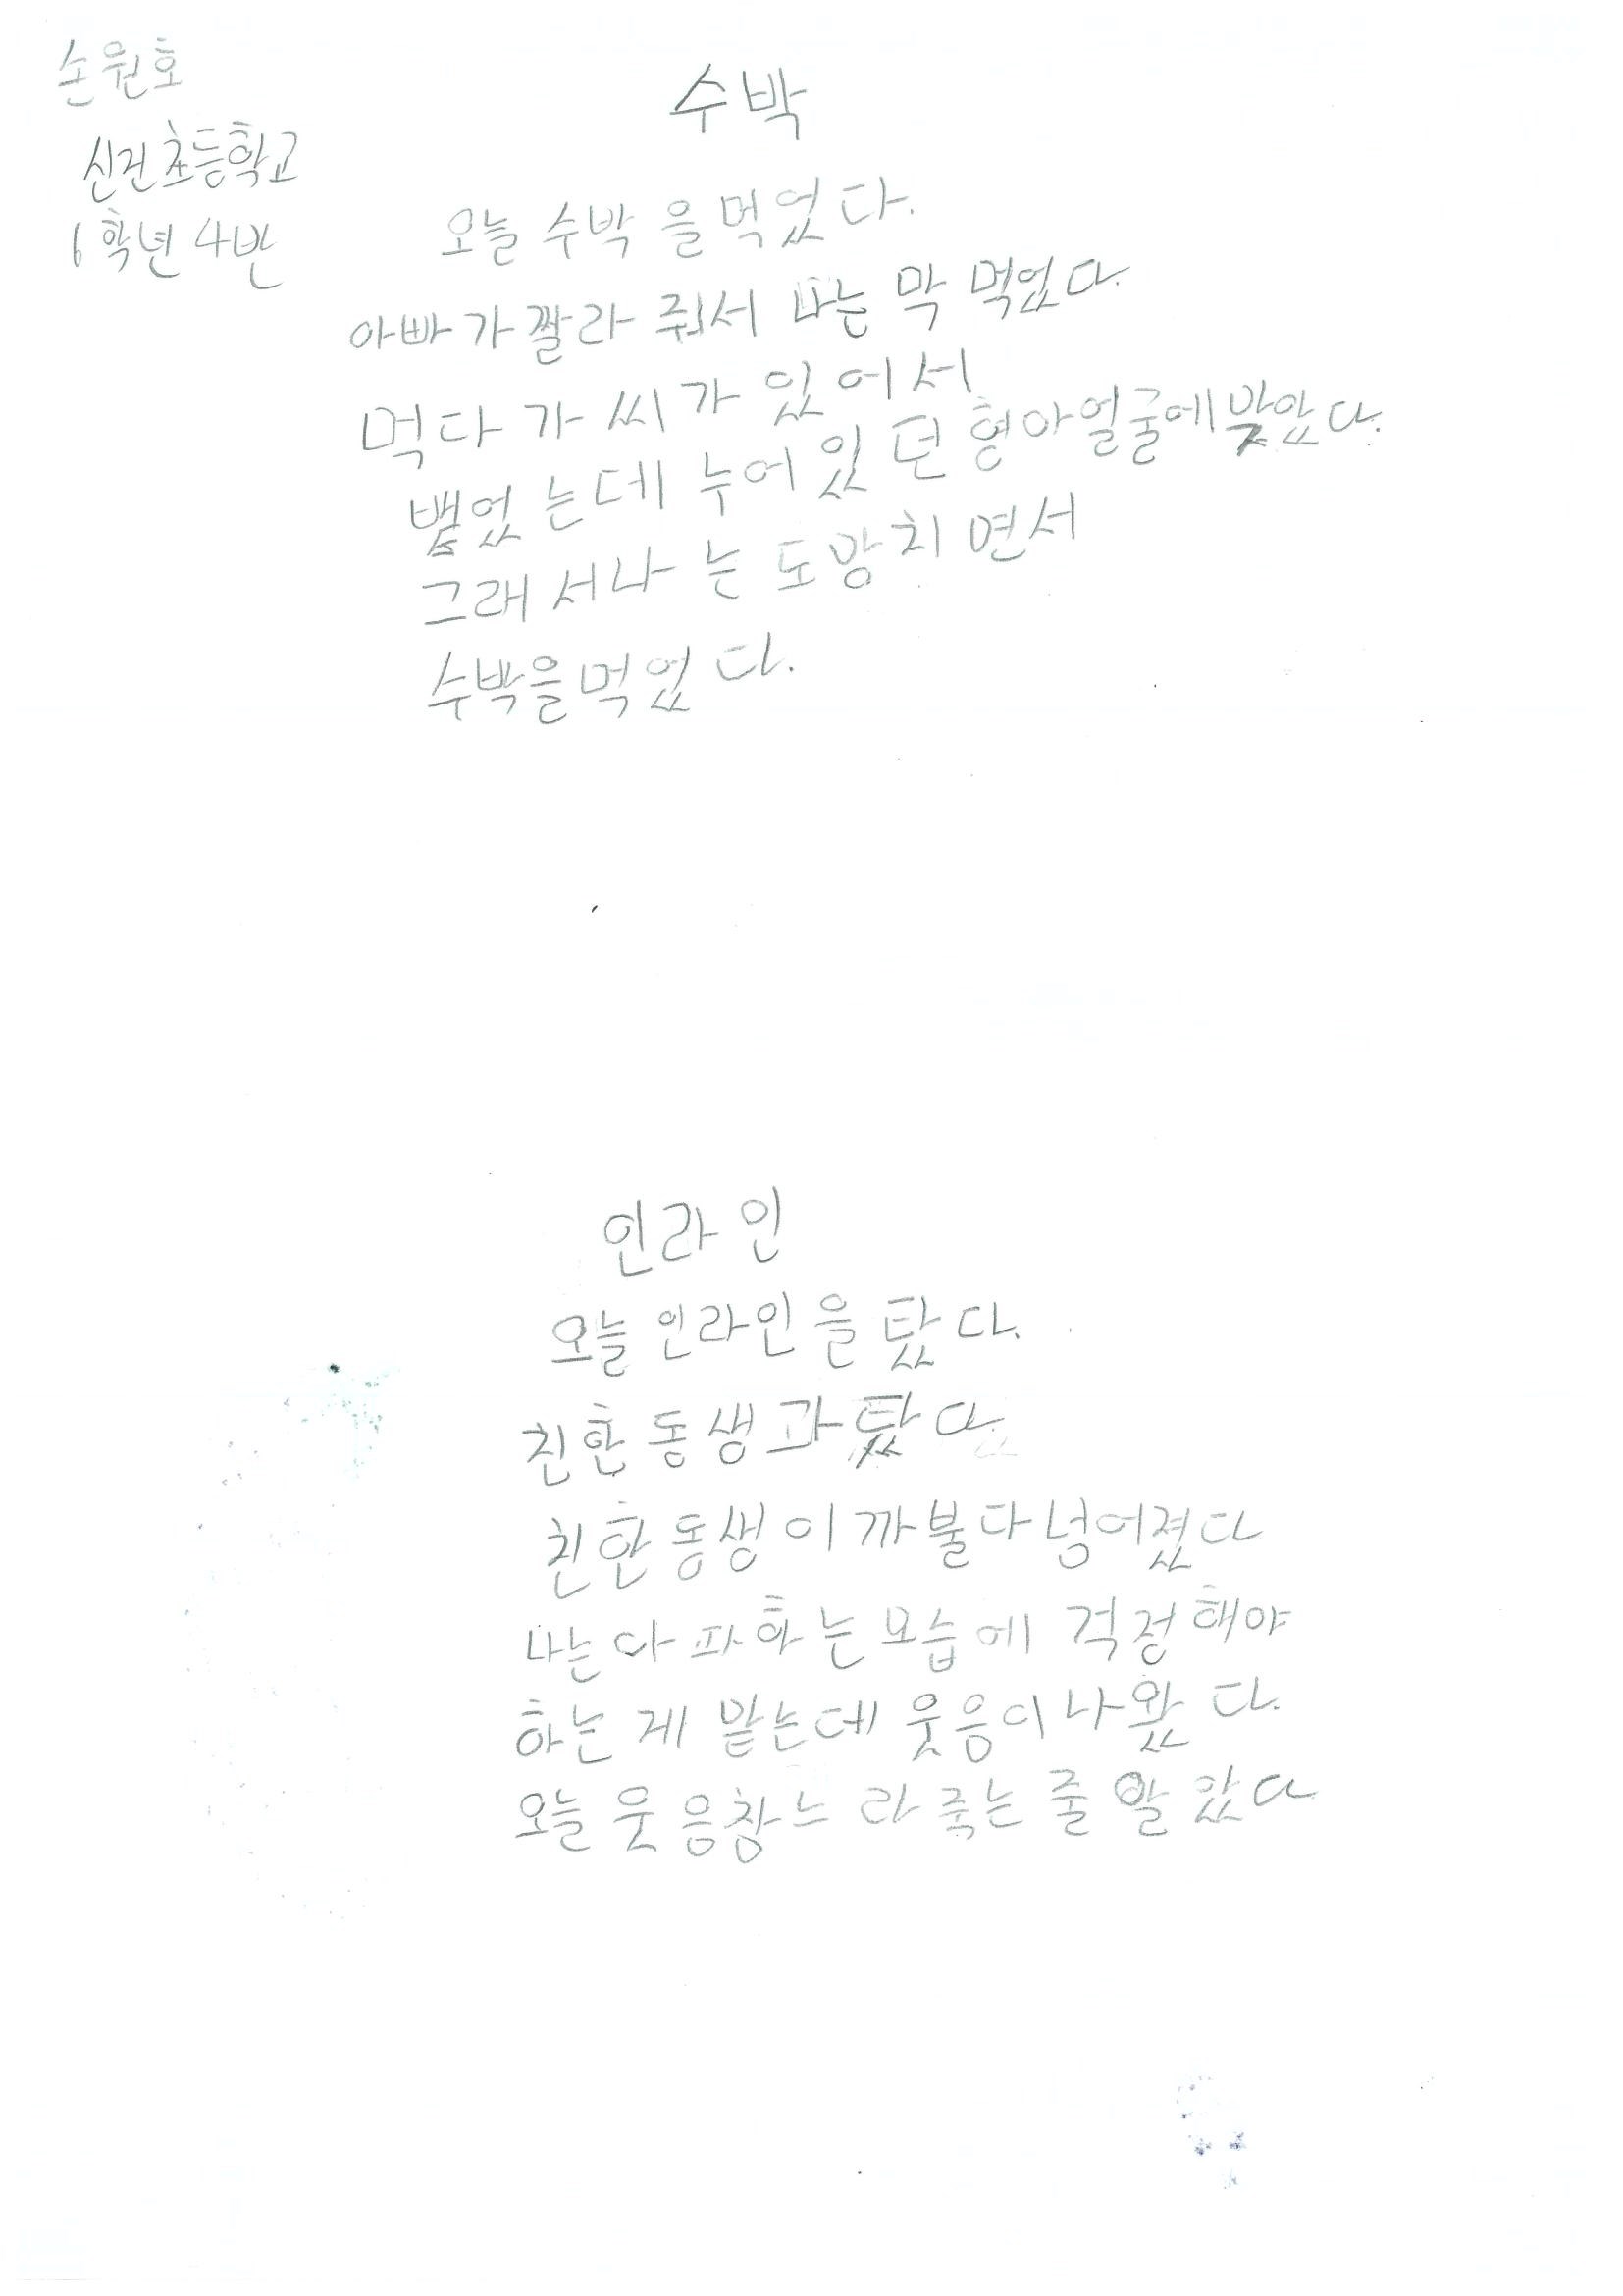 손원호
신진초등학교
6학년 4반
수박
오늘 수박을 먹었다.
아빠가 짤라 줘서 나는 막 먹었다.
먹다가 씨가 있어서
뱉었는데 누어있던 형아얼굴에 맞았다.
그래서 나는 도망치면서
수박을 먹었다.
인라인
오늘 인라인을 탔다.
친한 동생과 탔다
친한 동생이 까불다 넝어졌다
나는 아파하는 모습에 걱정해야
하는게 맡는데 웃음이 나왔다.
오늘 웃음참느라 죽는 줄 알았다